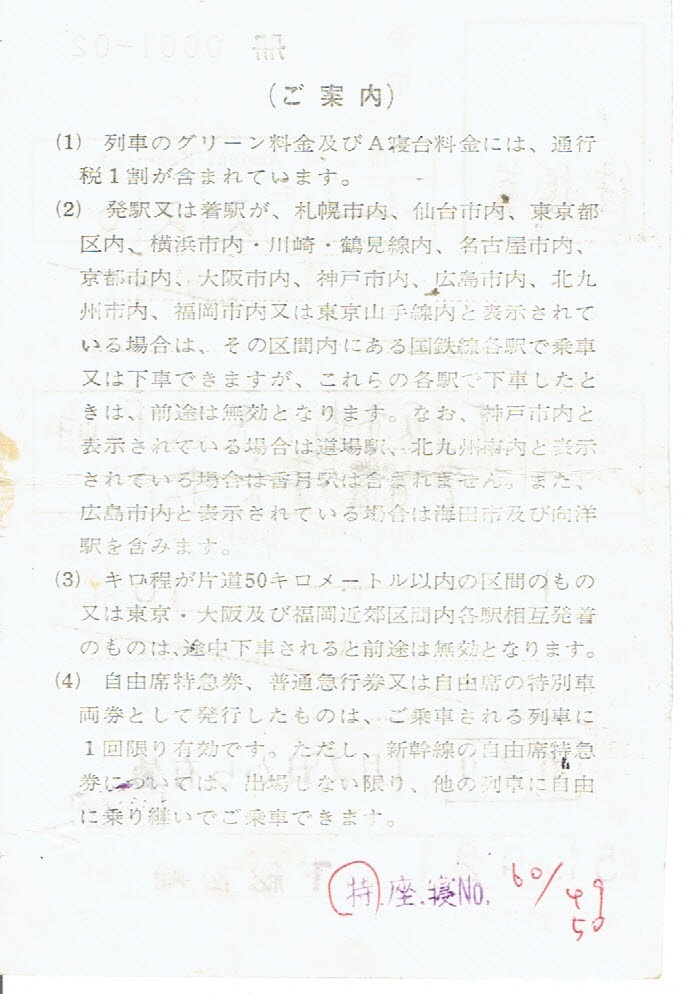 (ご案内)
(1) 列車のグリーン料金及びA寝台料金には、通行
税1割が含まれています。
(2) 発駅又は着駅が、札幌市内、仙台市内、東京都
区内、横浜市内・川崎・鶴見線内、名古屋市内、
京都市内、大阪市内、神戸市内、広島市内、北九
州市内、福岡市内又は東京山手線内と表示されて
いる場合は、その区間内にある国鉄線各駅で乗車
又は下車できますが、これらの各駅で下車したと
きは、前途は無効となります。なお、神戸市内と
表示されている場合は道場駅、北九州市内と表示
されている場合は香月駅は含まれません。また、
広島市内と表示されている場合は海田市及び向洋
駅を含みます。
(3) キロ程が片道50キロメートル以内の区間のもの
又は東京・大阪及び福岡近郊区間内各駅相互発着
のものは、途中下車されると前途は無効となります。
(4) 自由席特急券、普通急行券又は自由席の特別車
両券として発行したものは、ご乗車される列車に
1回限り有効です。ただし、新幹線の自由席特急
券については、出場しない限り、他の列車に自由
に乗り継いでご乗車できます。
特.座.寝No. 60/49
50